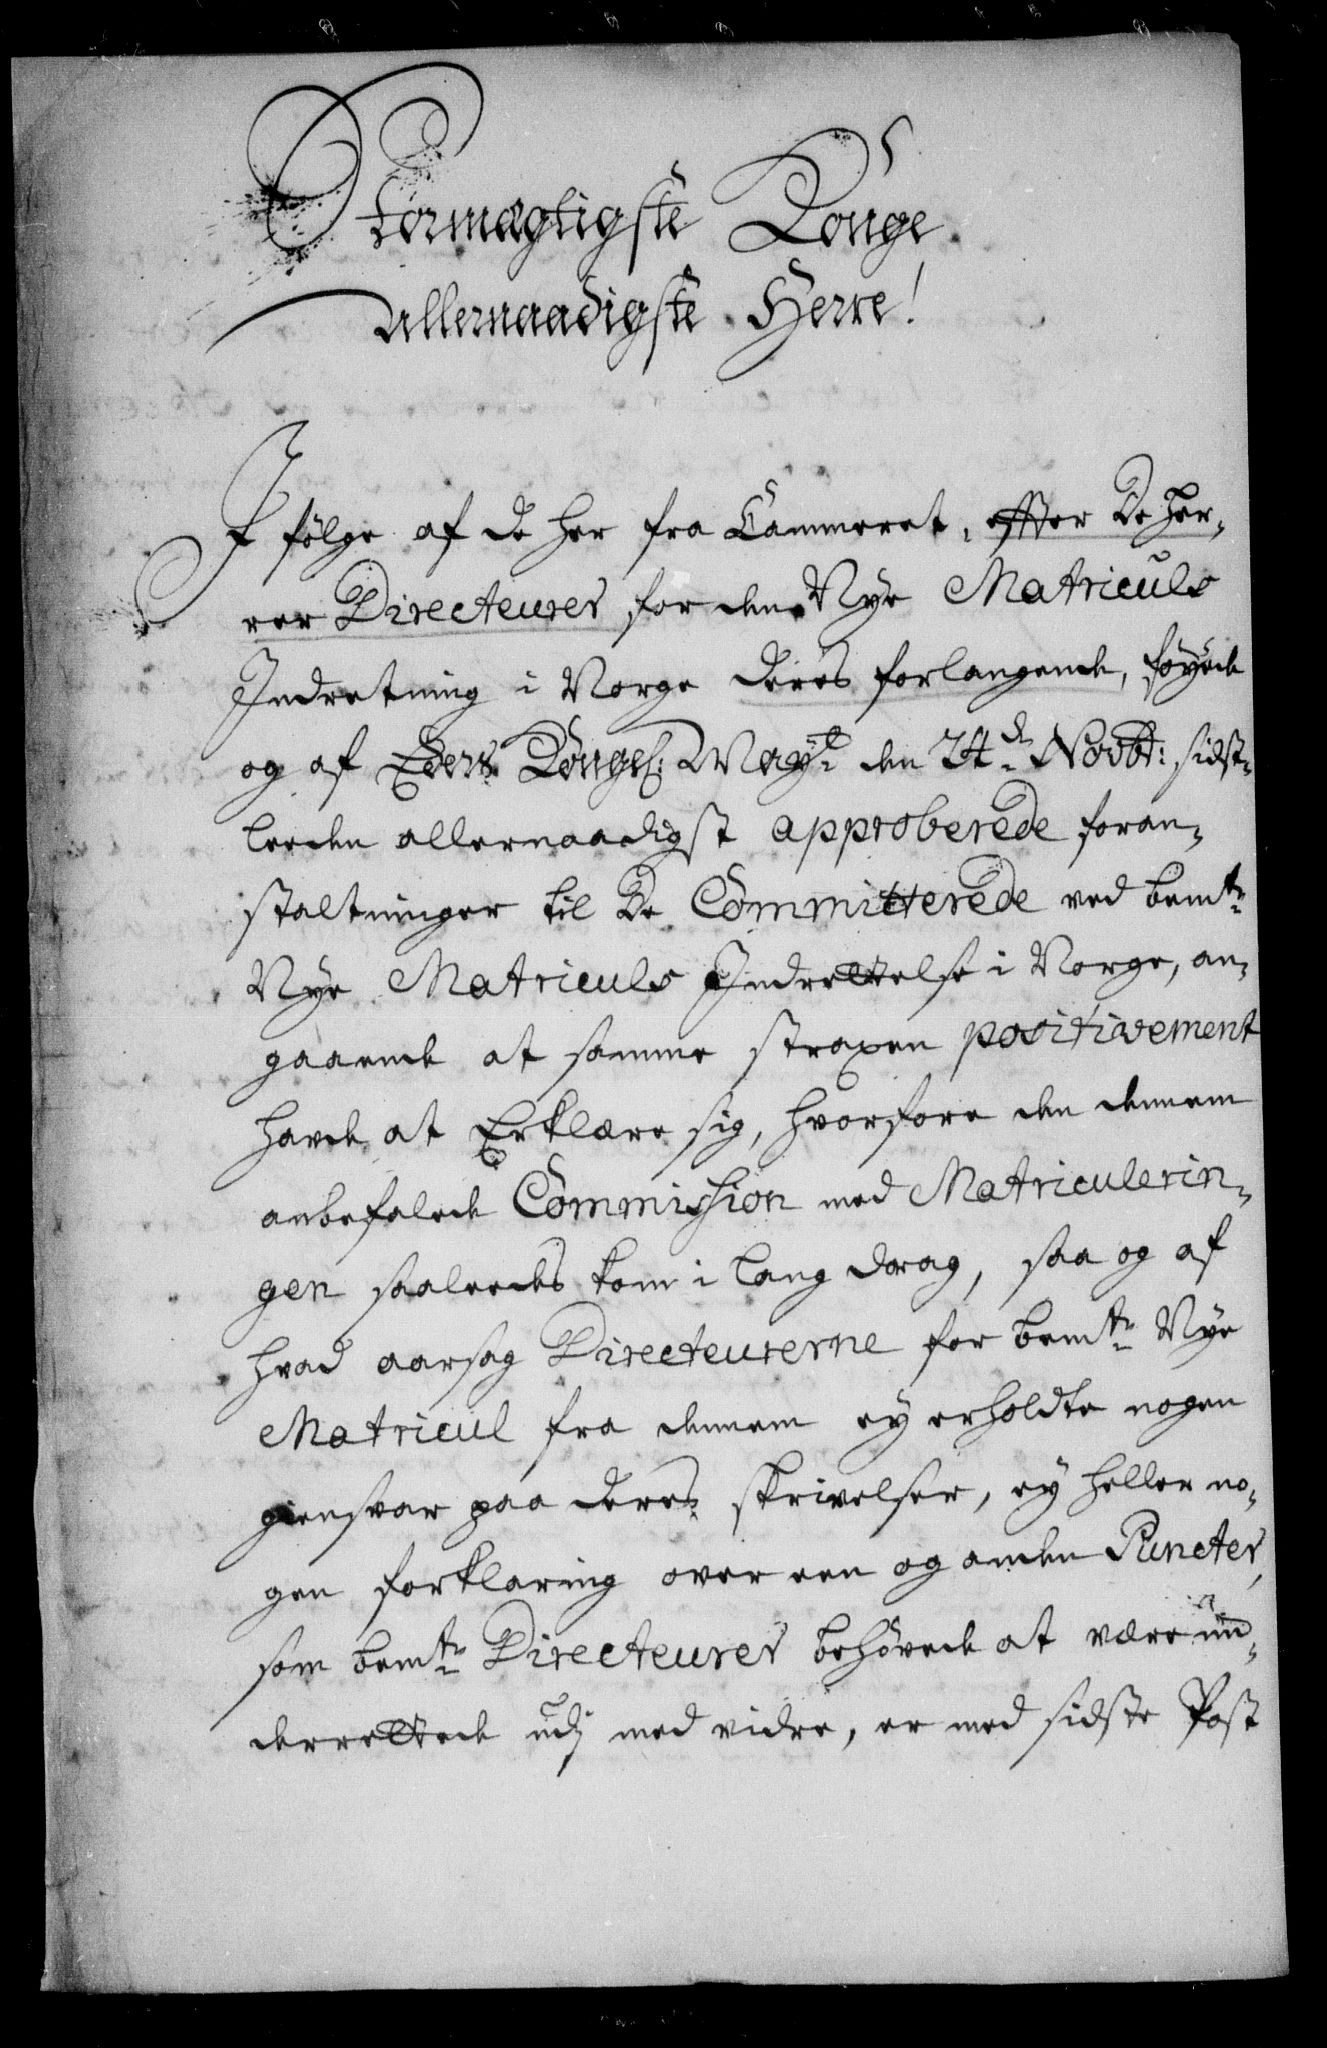 Stormægtigste Konge
Allernaadigste Herre!
I følge af de her fra Cammeret, effter De Her-
rer Directeurer for den Nye Matriculs
Indretning i Norge deres forlangende, føyede
og af Eders Kongel: May:t den 24:de Novbr: sidst-
leeden allernaadigst approberede foran-
staltninger til De Committerede ved bem:te
Nye Matriculs Indrettelse i Norge, an-
gaaende at samme straxen positivement
havde at Erklære sig, hvorfore den dennem
anbefalede Commission med Matriculerin-
gen saaledes kom i lang drag, saa og af
hvad aarsag Directeurerne for bem:te Nye
Matricul fra dennem ey erholdte nogen
giensvar paa deres skrivelser, ey heller no-
gen forklaring over een og anden Puncter,
som bem:te Directeurer behøvede at være un-
derrettede udj med vidre, er med sidste Post